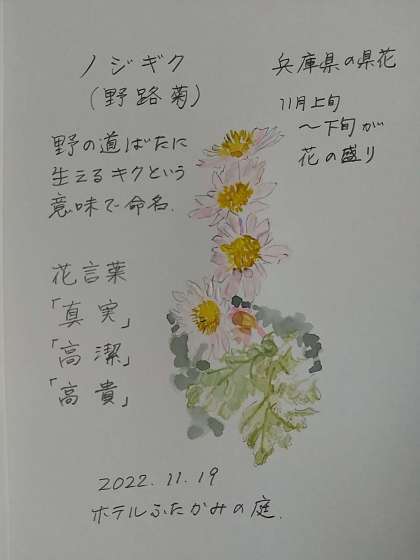 ノジギク
(野路菊)
兵庫県の県花
11月上旬
〜下旬が
花の盛り
野の道ばたに
生えるキクという
意味で命名.
花言葉
「真実」
「高潔」
「高貴」
2022.11.19
ホテルふたかみの庭.